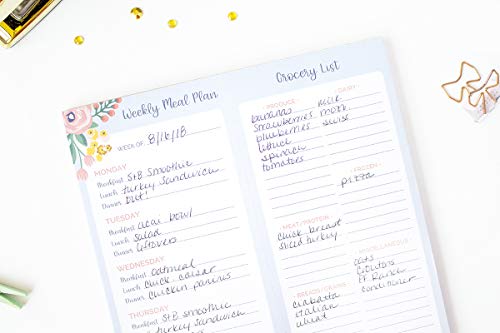 Weekly Meal Plan
WEEK OF: 8/16/18
MONDAY
Breakfast StB Smoothie
Lunch turkey Sandwich
Dinner Out!
TUESDAY
Breakfast acai bowl
Lunch Salad
Dinner leftovers
WEDNESDAY
Breakfast Oatmeal
Lunch Chick. caesar
Dinner chicken paninis
THURSDAY
Breakfast StB Smoothie
Lunch turkey sandwich
Grocery List
PRODUCE
bananas
strawberries
blueberries
lettuce
spinach
tomatoes
DAIRY
milk
mozz
swiss
FROZEN
pizza
MEAT/PROTEIN
chick breast
sliced turkey
MISCELLANEOUS
oats
croutons
FF Ranch
conditioner
BREADS/GRAINS
ciabatta
italian
wheat